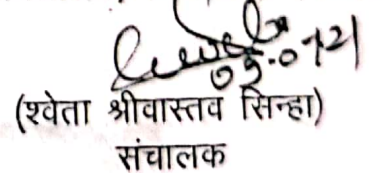 (श्वेता श्रीवास्तव सिन्हा)
संचालक